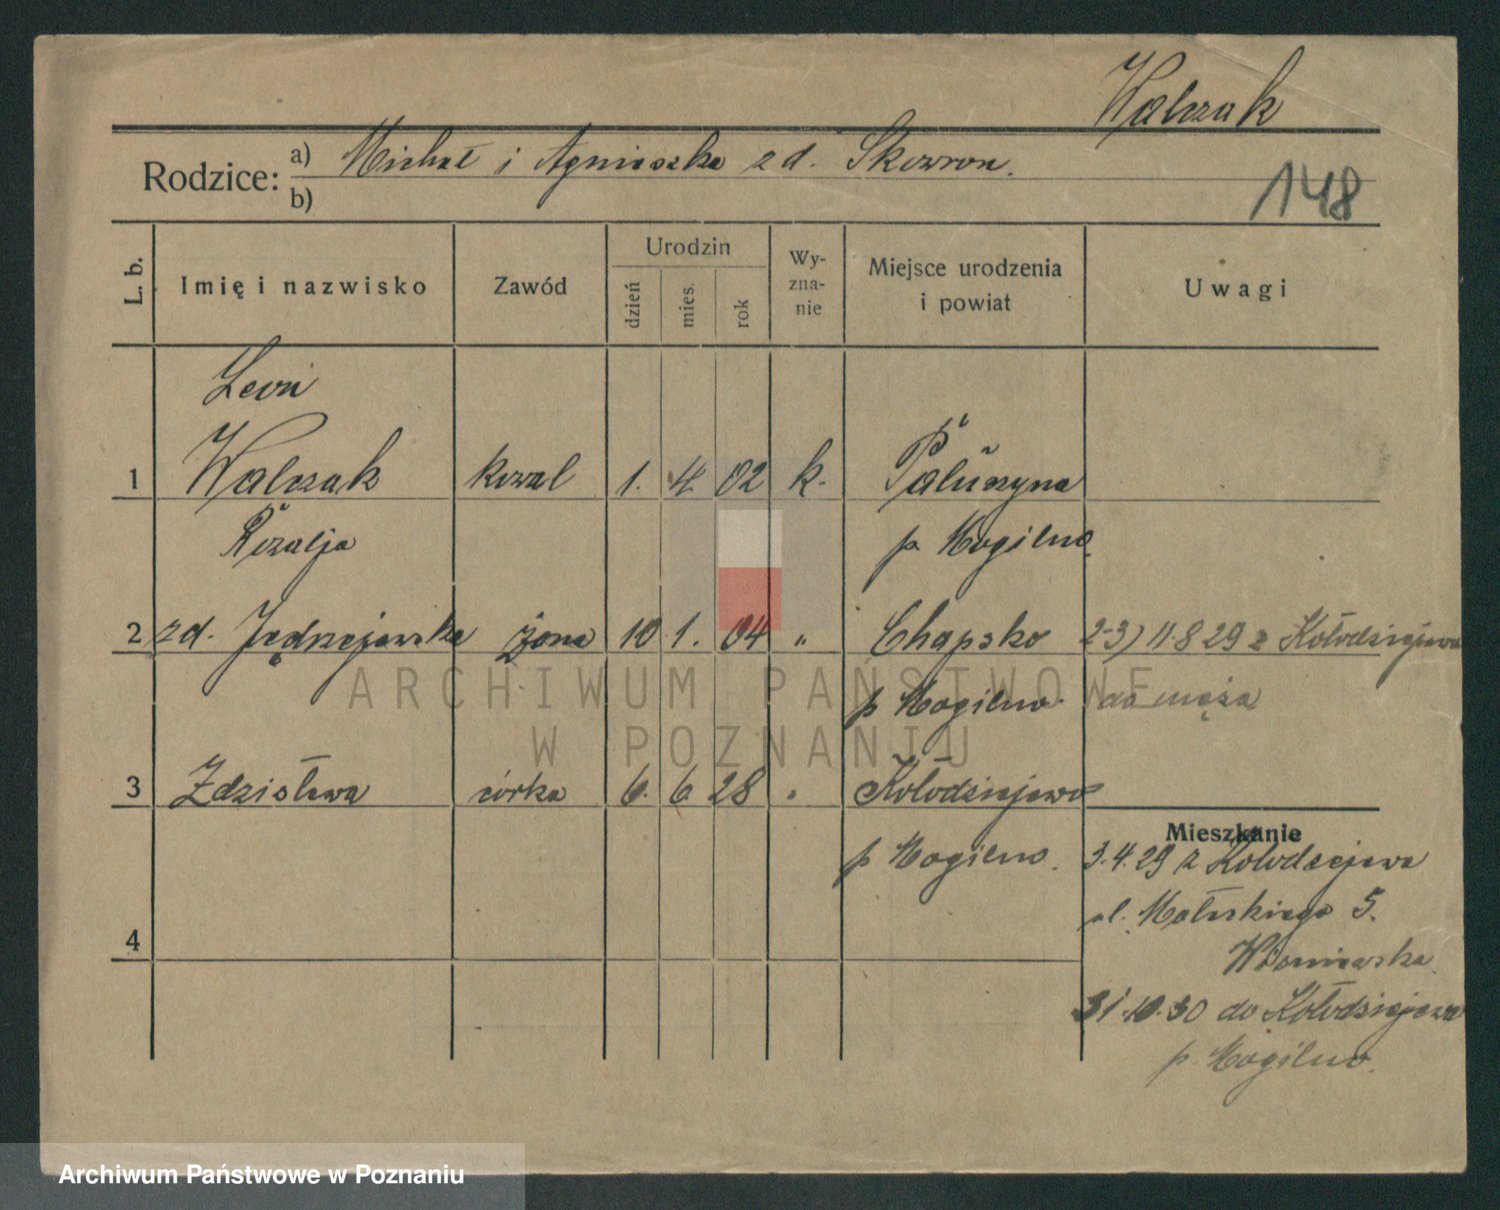 Walczak
Rodzice: a) Michał i Agnieszka z d. Skowron.
b)
148
L. b. Imię i nazwisko Zawód Urodzin dzień mies. rok Wy-zna-nie Miejsce urodzenia i powiat Uwagi
Leon
1 Walczak kowal 1. 4. 02 k. Paluszyna
Rozalja p. Mogilno
2 zd. Jędrzejewska żona 10 1. 04 " Chapsko 2-3) 11.8 29 z Kołodziejewa
p Mogilno do męża
3 Zdzisława córka 6. 6 28 " Kołodziejewo
Mieszkanie
p Mogilno. 3.4.29 z Kołodziejewa
ul. 5.
4
31.10.30 do Kołodziejewa
p. Mogilno.
ARCHIWUM PAŃSTWOWE
W POZNANIU
Archiwum Państwowe w Poznaniu